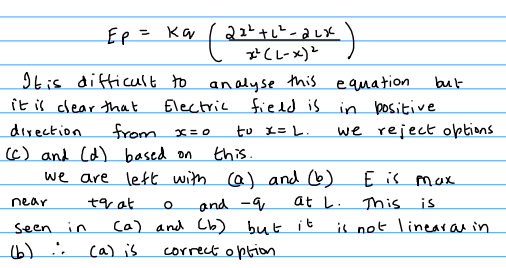 Ep = Kq ( 2x² + L² - 2Lx / x² (L-x)² )
It is difficult to analyse this equation but
it is clear that Electric field is in positive
direction from x=0 to x=L. we reject options
(c) and (d) based on this.
we are left with (a) and (b) E is max
near +q at 0 and -q at L. This is
seen in (a) and (b) but it is not linear as in
(b) ∴ (a) is correct option